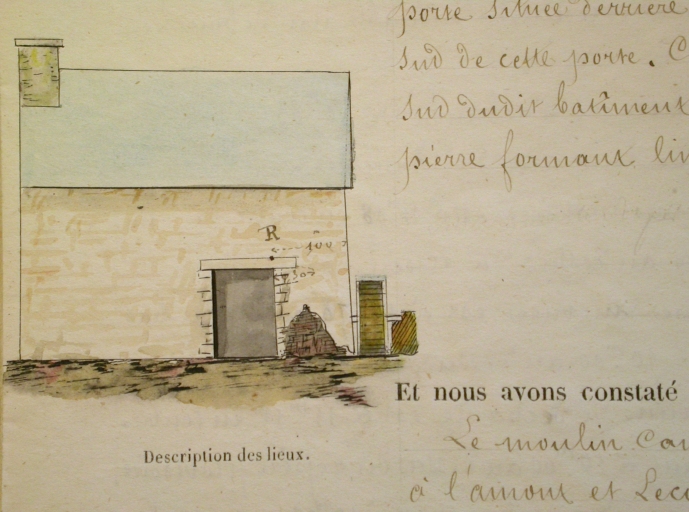 porte située derrière
sud de cette porte. C
sud dudit batîment
pierre formant lin
R
100
50
Et nous avons constaté
Description des lieux.
Le moulin Car
à l'amont et Leco